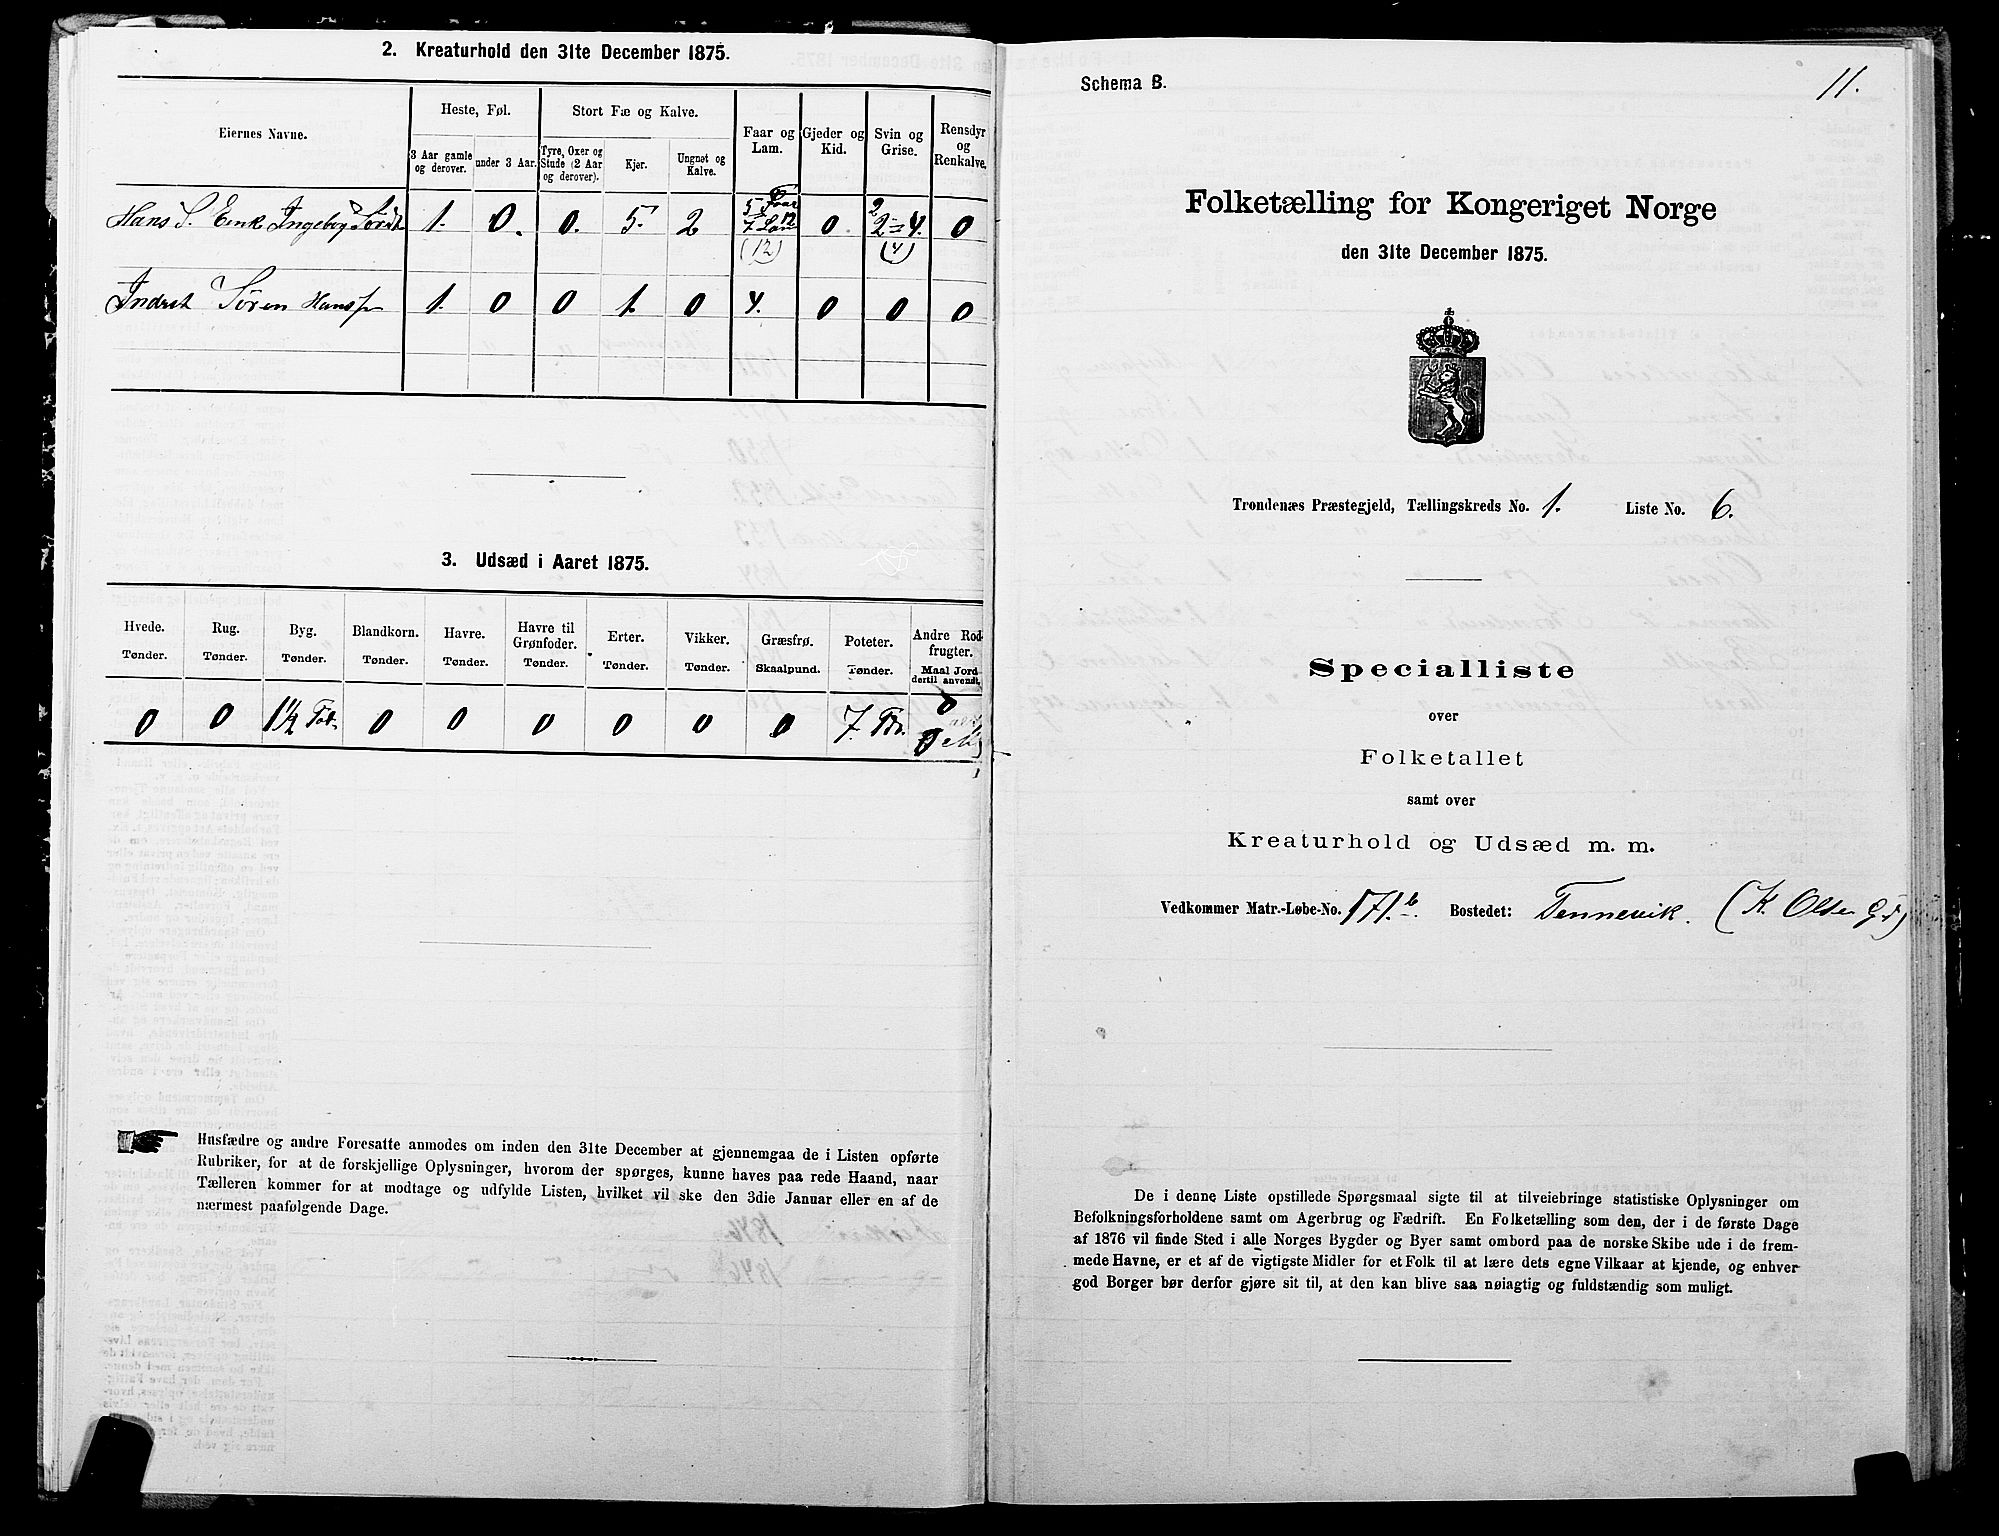 2. Kreaturhold den 31te December 1875.
Eiernes Navne.
Heste, Føl.
Stort Fæ og Kalve.
Faar og Lam.
Gjeder og Kid.
Svin og Grise.
Rensdyr og Renkalve.
3 Aar gamle og derover.
under 3 Aar.
Tyre, Oxer og Stude (2 Aar og derover).
Kjør.
Ungnøt og Kalve.
Hans S. Enk Ingebog 1. 0. 0. 5. 2 5 Faar 7 Lam 12 (12) 0. 2 2=4. (4) 0
Indrst Søren Hanss 1. 0 0 1. 0 4. 0 0 0
3. Udsæd i Aaret 1875.
Hvede. Rug. Byg. Blandkorn. Havre. Havre til Grønfoder. Erter. Vikker. Græsfrø. Poteter. Andre Rodfrugter.
Tønder. Tønder. Tønder. Tønder. Tønder. Tønder. Tønder. Tønder. Skaalpund. Tønder. Maal Jord dertil anvendt.
0 0 1½ Tdr. 0 0 0 0 0 0 7. Tdr. 0
Husfædre og andre Foresatte anmodes om inden den 31te December at gjennemgaa de i Listen opførte
Rubriker, for at de forskjellige Oplysninger, hvorom der spørges, kunne haves paa rede Haand, naar
Tælleren kommer for at modtage og udfylde Listen, hvilket vil ske den 3die Januar eller en af de
nærmest paafølgende Dage.
11.
Schema B.
Folketælling for Kongeriget Norge
den 31te December 1875.
Trondenæs Præstegjeld, Tællingskreds No. 1. Liste No. 6.
Specialliste
over
Folketallet
samt over
Kreaturhold og Udsæd m. m.
Vedkommer Matr.-Løbe-No. 171.b Bostedet: Tennevik. (K. Olsen
De i denne Liste opstillede Spørgsmaal sigte til at tilveiebringe statistiske Oplysninger om
Befolkningsforholdene samt om Agerbrug og Fædrift. En Folketælling som den, der i de første Dage
af 1876 vil finde Sted i alle Norges Bygder og Byer samt ombord paa de norske Skibe ude i de frem-
mede Havne, er et af de vigtigste Midler for et Folk til at lære dets egne Vilkaar at kjende, og enhver
god Borger bør derfor gjøre sit til, at den kan blive saa nøiagtig og fuldstændig som muligt.